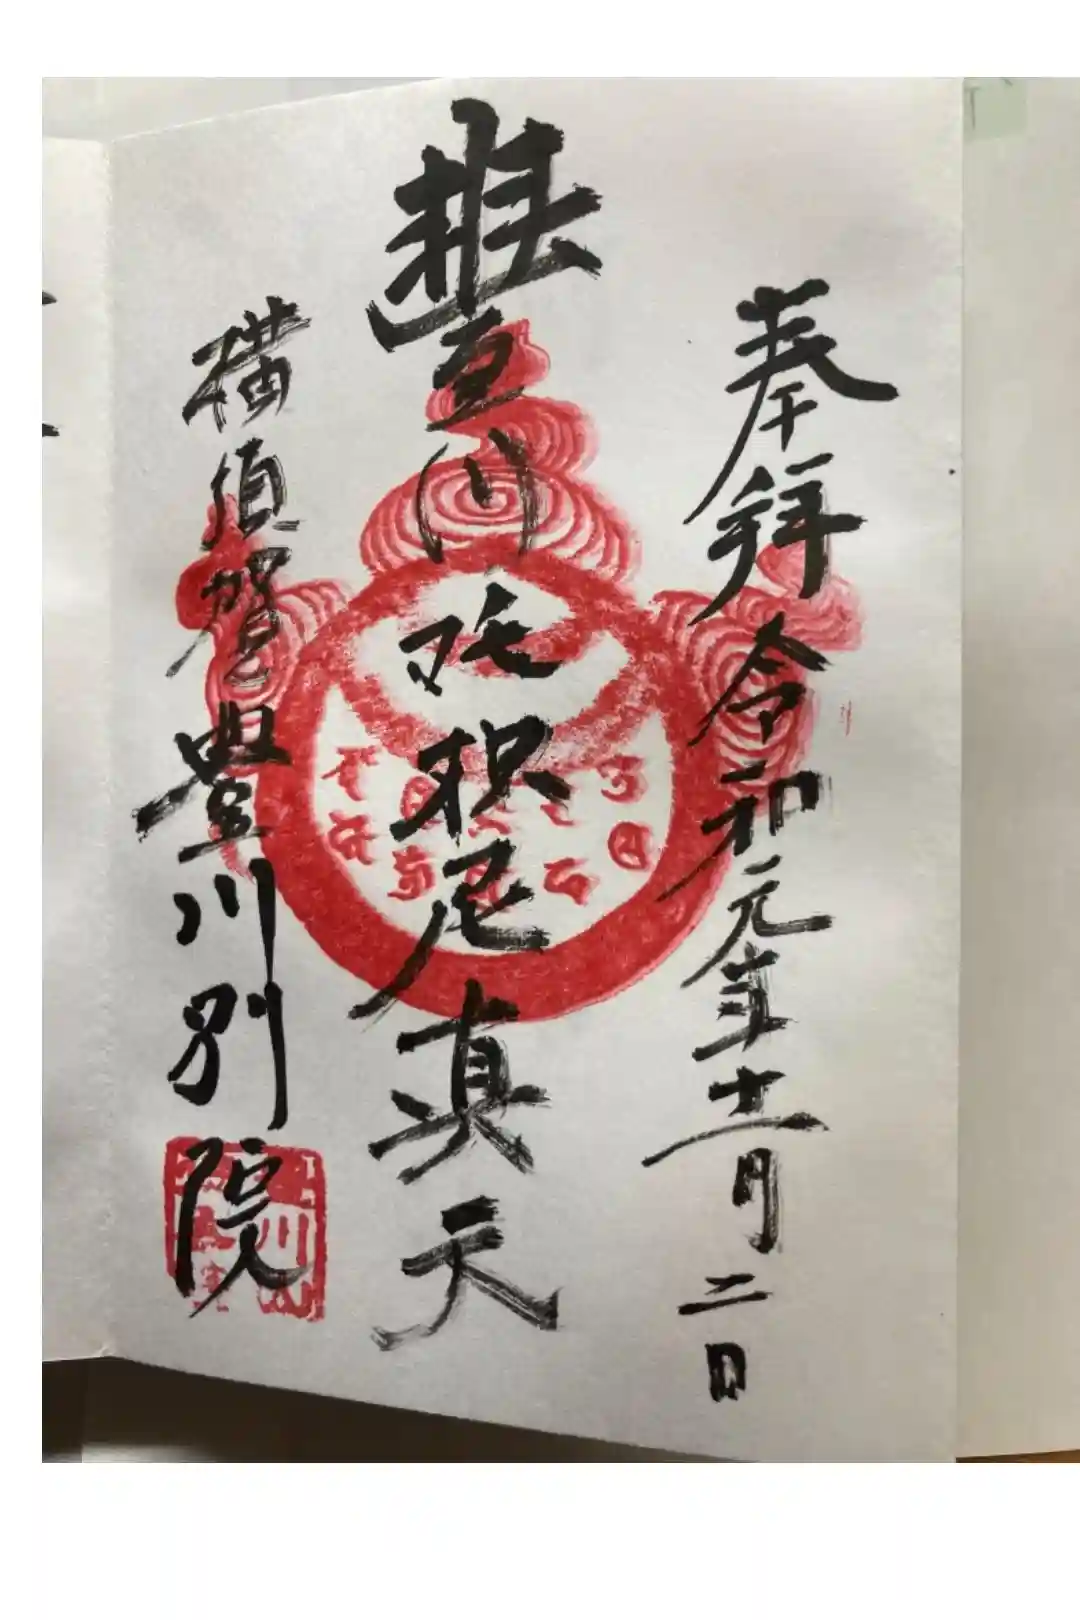 奉拝 令和元年十二月二日
豐川吒枳尼真天
横須賀豊川別院